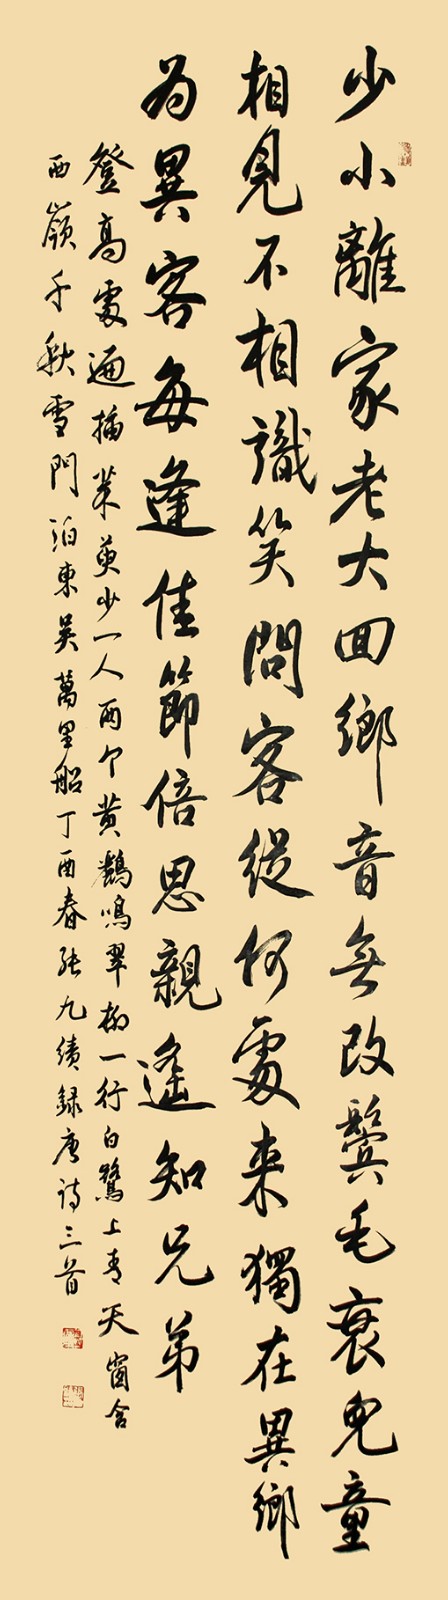 少小離家老大回鄉音無改鬢毛衰兒童
相見不相識笑問客從何處来獨在異鄉
為異客每逢佳節倍思親遙知兄弟
登高處遍插茱萸少一人两个黄鸝鳴翠柳一行白鷺上青天窗含
西嶺千秋雪門泊東吴萬里船丁酉春張九績録唐詩三首